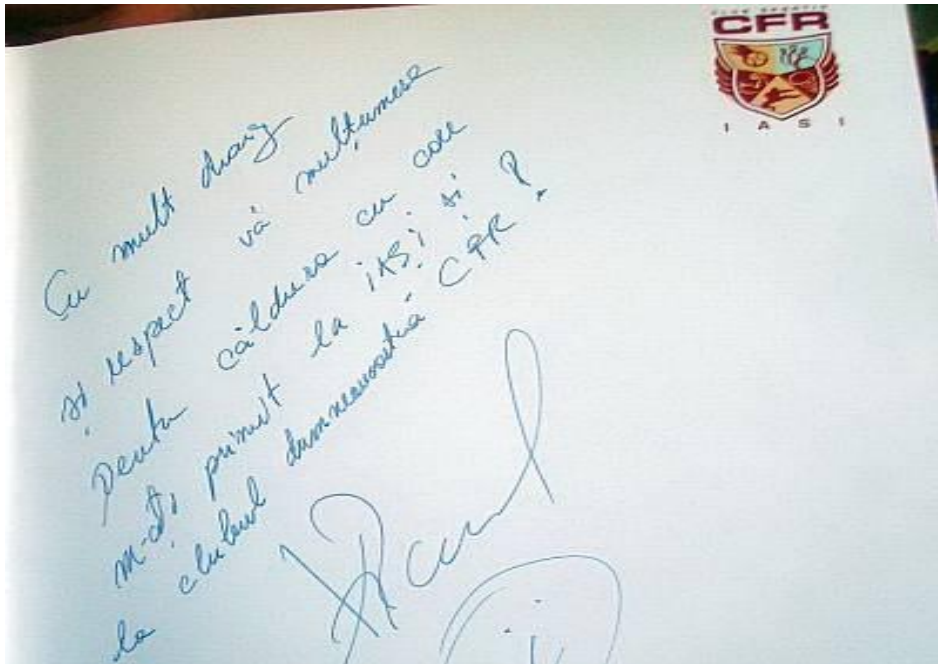 CLUB SPORTIV
CFR
IASI
Cu mult drag
și respect vă mulțumesc
pentru căldura cu care
m-ați primit la iAȘi și
la clubul dumneavoastră CFR!